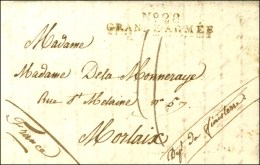 Nº 28
GRANDE ARMÉE
Madame
Madame De la Monneraye
Rue St Melaine nº 57
Morlaix
France
Dept de Finisterre